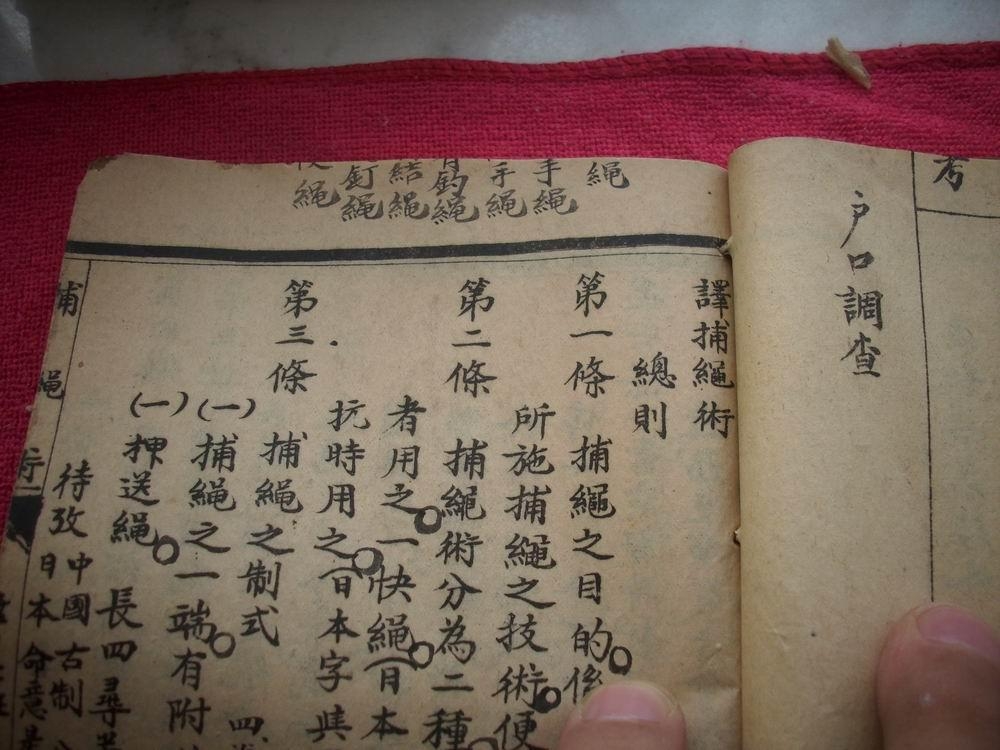 考
戶口調查
譯捕繩術
總則
第一條 捕繩之目的係
所施捕繩之技術便
第二條 捕繩術分為二種
者用之一快繩日本
抗時用之日本字其
第三條 捕繩之制式
(一)捕繩之一端有附
(一)押送繩 長四尋
待攷中國古制
日本命意
繩
手繩
手繩
釣繩
結繩
釘繩
繩
捕繩術